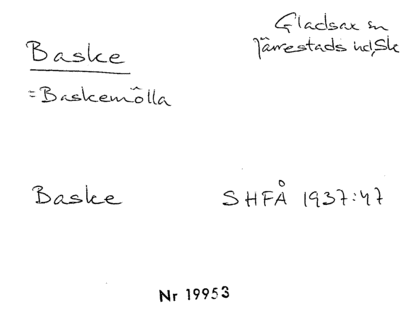 Baske
Gladsax sn
Järrestads hd, Sk
=Baskemölla
Baske SHFÅ 1937:47
Nr 19953